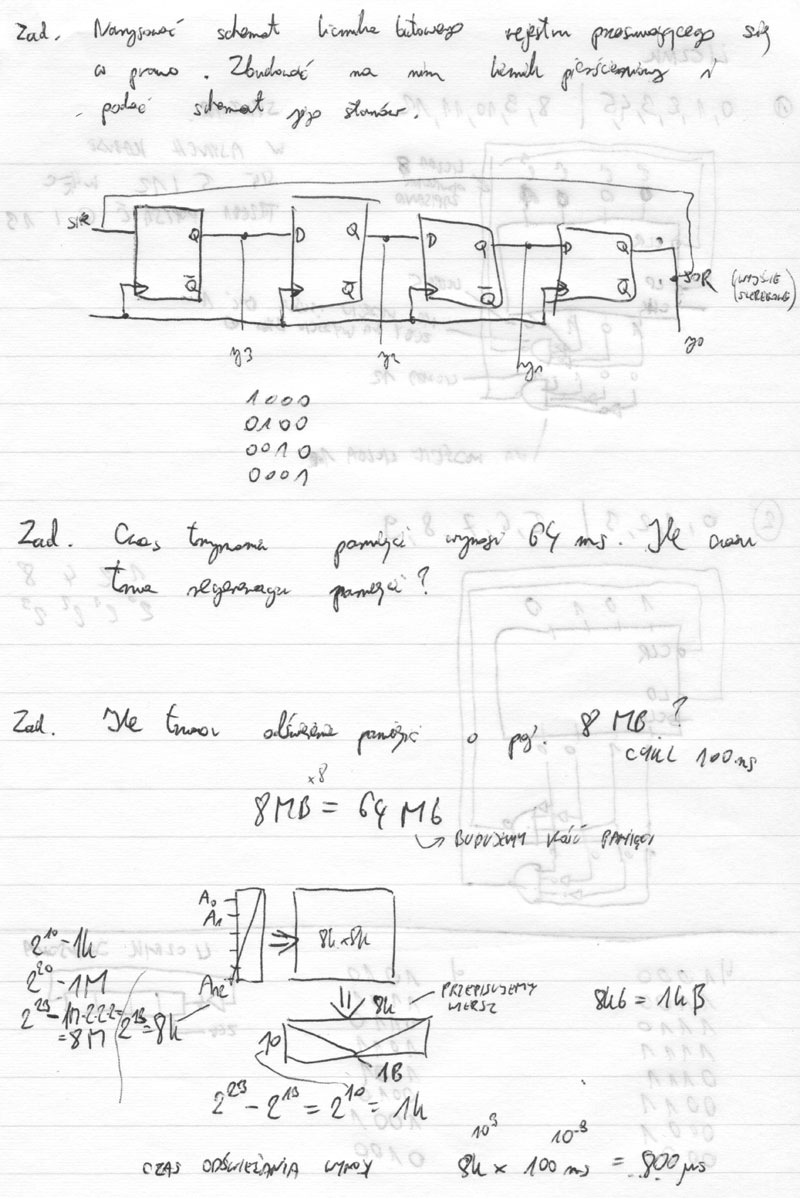 Zad. Narysować schemat licznika bitowego rejestru przesuwającego się
w prawo. Zbudować na nim licznik pierścieniowy i
podać schemat jego stanów.
SIR
Q
Q
D
Q
Q
D
Q
Q
D
Q
Q
SOR (WYJŚCIE SZEREGOWE)
y3
y2
y1
y0
1000
0100
0010
0001
Zad. Czas trzymania pamięci wynosi 64 ms. Ile czasu
trwa regeneracja pamięci?
Zad. Ile trwa odświeżenie pamięci o poj. 8 MB?
CYKL 100 ns
x8
8MB = 64 Mb
BUDUJEMY KOŚĆ PAMIĘCI
A0
A1
A12
8k x 8k
2^10 - 1k
2^20 - 1M
2^23 - 1M·2·2·2 = 8M
2^13 = 8k
8k
PRZEPISUJEMY WIERSZ
8kb = 1kB
10
1B
2^23 - 2^13 = 2^10 = 1k
10^3 10^-9
CZAS ODŚWIEŻANIA WYNOSI 8k x 100 ns = 800 μs